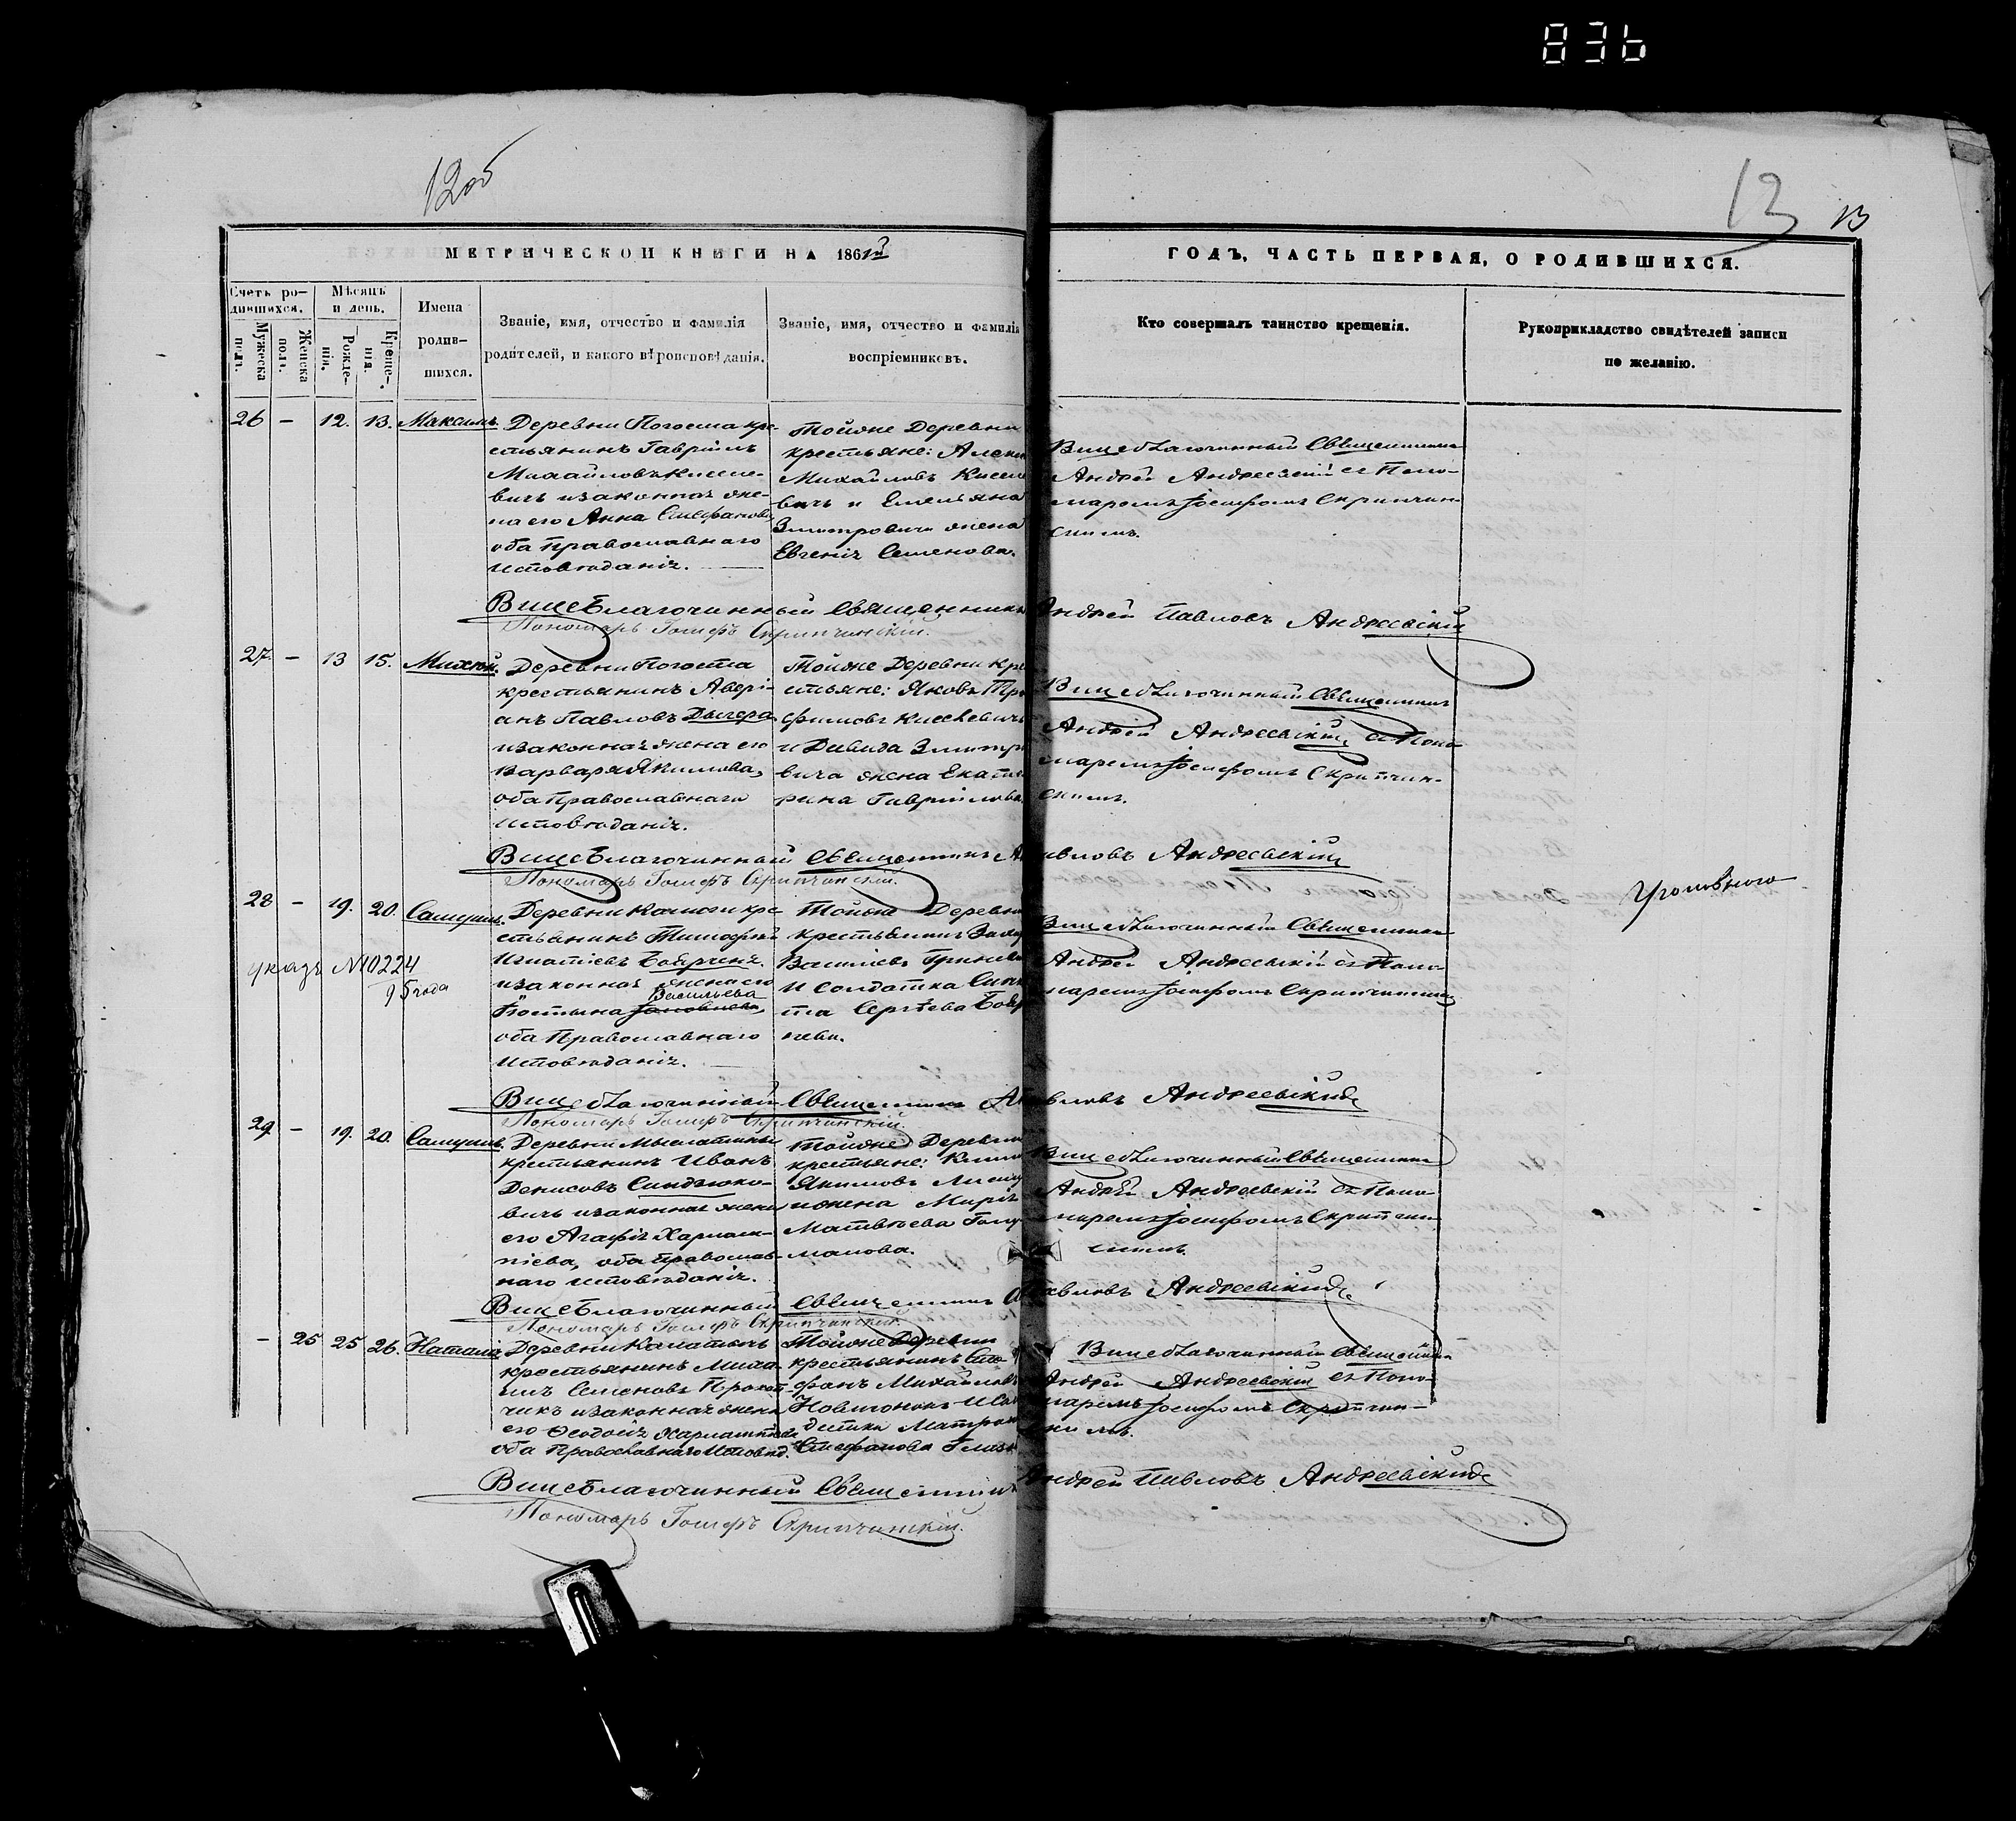 836
12об
13
13
МЕТРИЧЕСКОЙ КНИГИ НА 1863
ГОДЪ, ЧАСТЬ ПЕРВАЯ, О РОДИВШИХСЯ.
Счетъ ро-
дившихся.
Мужеска
полл.
Женска
полл.
Мѣсяцъ
и день.
Рожде-
нія.
Креще-
нія.
Имена
родив-
шихся.
Званіе, имя, отчество и фамилія
родителей, и какого вѣроисповѣданія.
Званіе, имя, отчество и фамилія
воспріемниковъ.
Кто совершалъ таинство крещенія.
Рукоприкладство свидѣтелей записи
по желанію.
26 – 12. 13. Максимъ.
Деревни Погоста кре-
стьянинъ Гавріилъ
Михайловъ Кисле-
вичъ и законная же-
на его Анна Стефанова,
оба православнаго
исповѣданія.
Тойже Деревни
крестьяне:
Михайловъ
вичъ и Емельяна
Змитровича жена
Евгенія Семенова.
Вицеблагочинный Священникъ
Андрей Андреевскій съ Поно-
маремъ Іосифомъ Скрипчин-
скимъ.
Вицеблагочинный Священникъ Андрей Павловъ Андреевскій
Пономарь Іосифъ Скрипчинскій.
27 – 13 15.
Деревни Погоста
крестьянинъ Авері-
анъ Павловъ Дычера
и законная жена его
Варвара Якимова,
оба Православнаго
исповѣданія.
Тойже Деревни кре
стьяне: Яковъ Тро
фимовъ Кислевичъ
и Давида Змитро
вича жена Екате
рина Гавріилова.
Вицеблагочинный Священникъ
Андрей Андреевскій съ Поно-
маремъ Іосифомъ Скрипчин-
скимъ.
Вицеблагочинный Священникъ А авловъ Андреевскій
Пономарь Іосифъ Скрипчинскій.
28 – 19. 20. Самуилъ.
указъ №10224
95 года
Деревни кре
стьянинъ Тимофей
Игнатіевъ
и законная жена его
Васильева
Іустина
оба Православнаго
исповѣданія.
Тойже Деревни
крестьянинъ
Василіевъ
и солдатка
Сергѣева
Вицеблагочинный Священникъ
Андрей Андреевскій съ Поно-
маремъ Іосифомъ Скрипчинскимъ
Уголовного
Вицеблагочинный Священникъ А вловъ Андреевскій
Пономарь Іосифъ Скрипчинскій.
29 – 19. 20. Самуилъ.
Деревни
крестьянинъ Иванъ
Денисовъ Синдзюко-
вичъ и законная жена
его Агафія Харлам-
піева, оба православ-
наго исповѣданія.
Тойже Деревни
крестьяне:
Якимовъ
и жена Марія
Матвѣева
манова.
Вицеблагочинный Священникъ
Андрей Андреевскій съ Поно-
маремъ Іосифомъ Скрипчин-
скимъ.
Вицеблагочинный Священникъ А авловъ Андреевскій
Пономарь Іосифъ Скрипчинскій.
– 25 25 26. Наталія
Деревни
крестьянинъ Миха-
илъ Семеновъ Прокоп-
чикъ и законная жена
его Ѳеодосія
оба Православнаго Исповѣд.
Тойже Деревни
крестьянинъ Сте-
фанъ Михайловъ
и Сол
датка Матрона
Стефанова
Вицеблагочинный Священникъ
Андрей Андреевскій съ Поно-
маремъ Іосифомъ Скрипчин-
скимъ.
Вицеблагочинный Священникъ Андрей Павловъ Андреевскій
Пономарь Іосифъ Скрипчинскій.